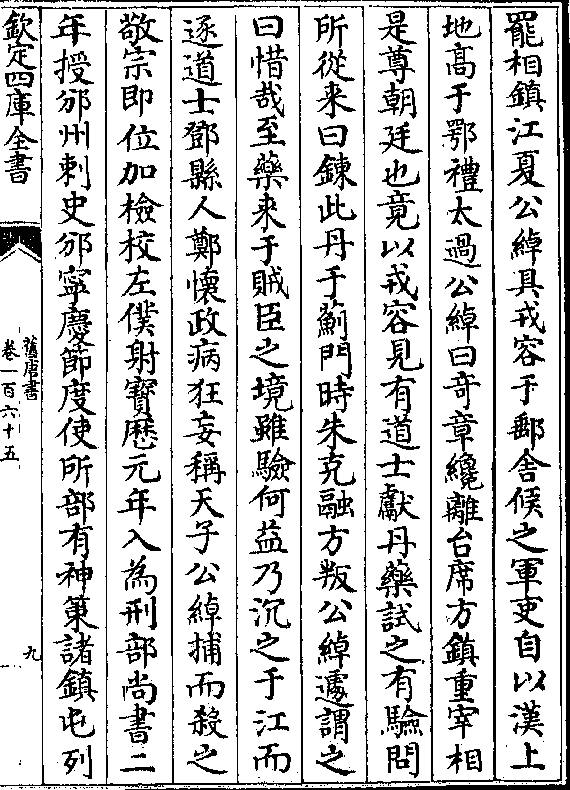 罷相鎮江夏公綽具戎容于郵舍候之軍吏自以漢上
地髙于鄂禮太過公綽曰奇章纔離台席方鎮重宰相
是尊朝廷也竟以戎容見有道士獻丹藥試之有驗問
所從来曰鍊此丹于薊門時朱克融方叛公綽遽謂之
曰惜哉至藥来于賊臣之境雖驗何益乃沉之于江而
逐道士鄧縣人鄭懷政病狂妄稱天子公綽捕而殺之
敬宗即位加檢校左僕射寳厯元年入為刑部尚書二
年授邠州刺史邠寧慶節度使所部有神策諸鎮屯列
欽定四庫全書
舊唐書
卷一百六十五
九